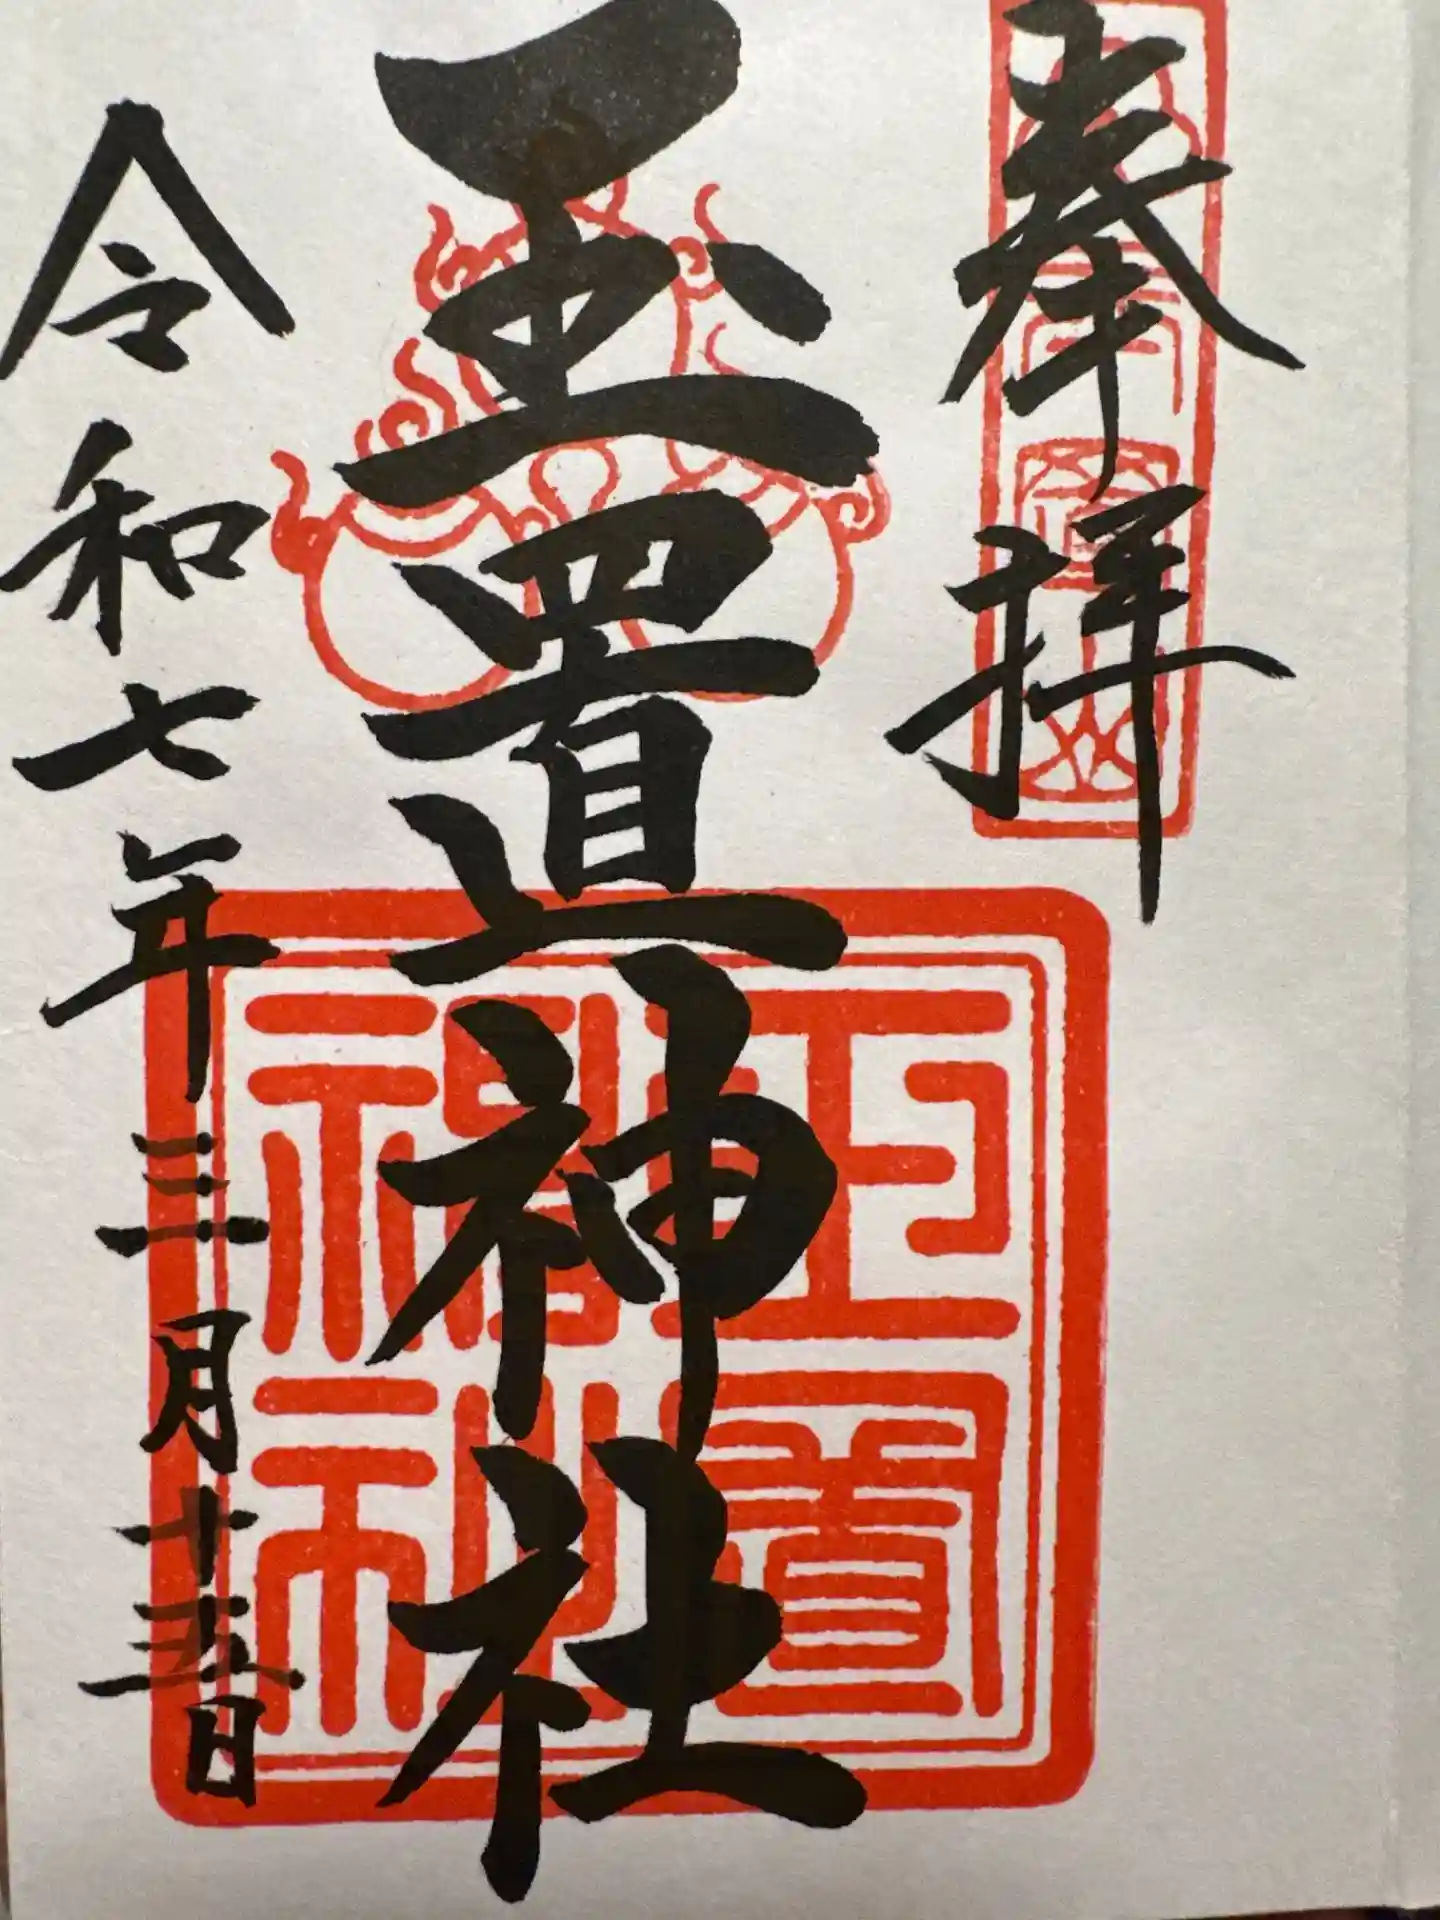 奉拝
玉置神社
令和七年三月十五日
玉置
神社